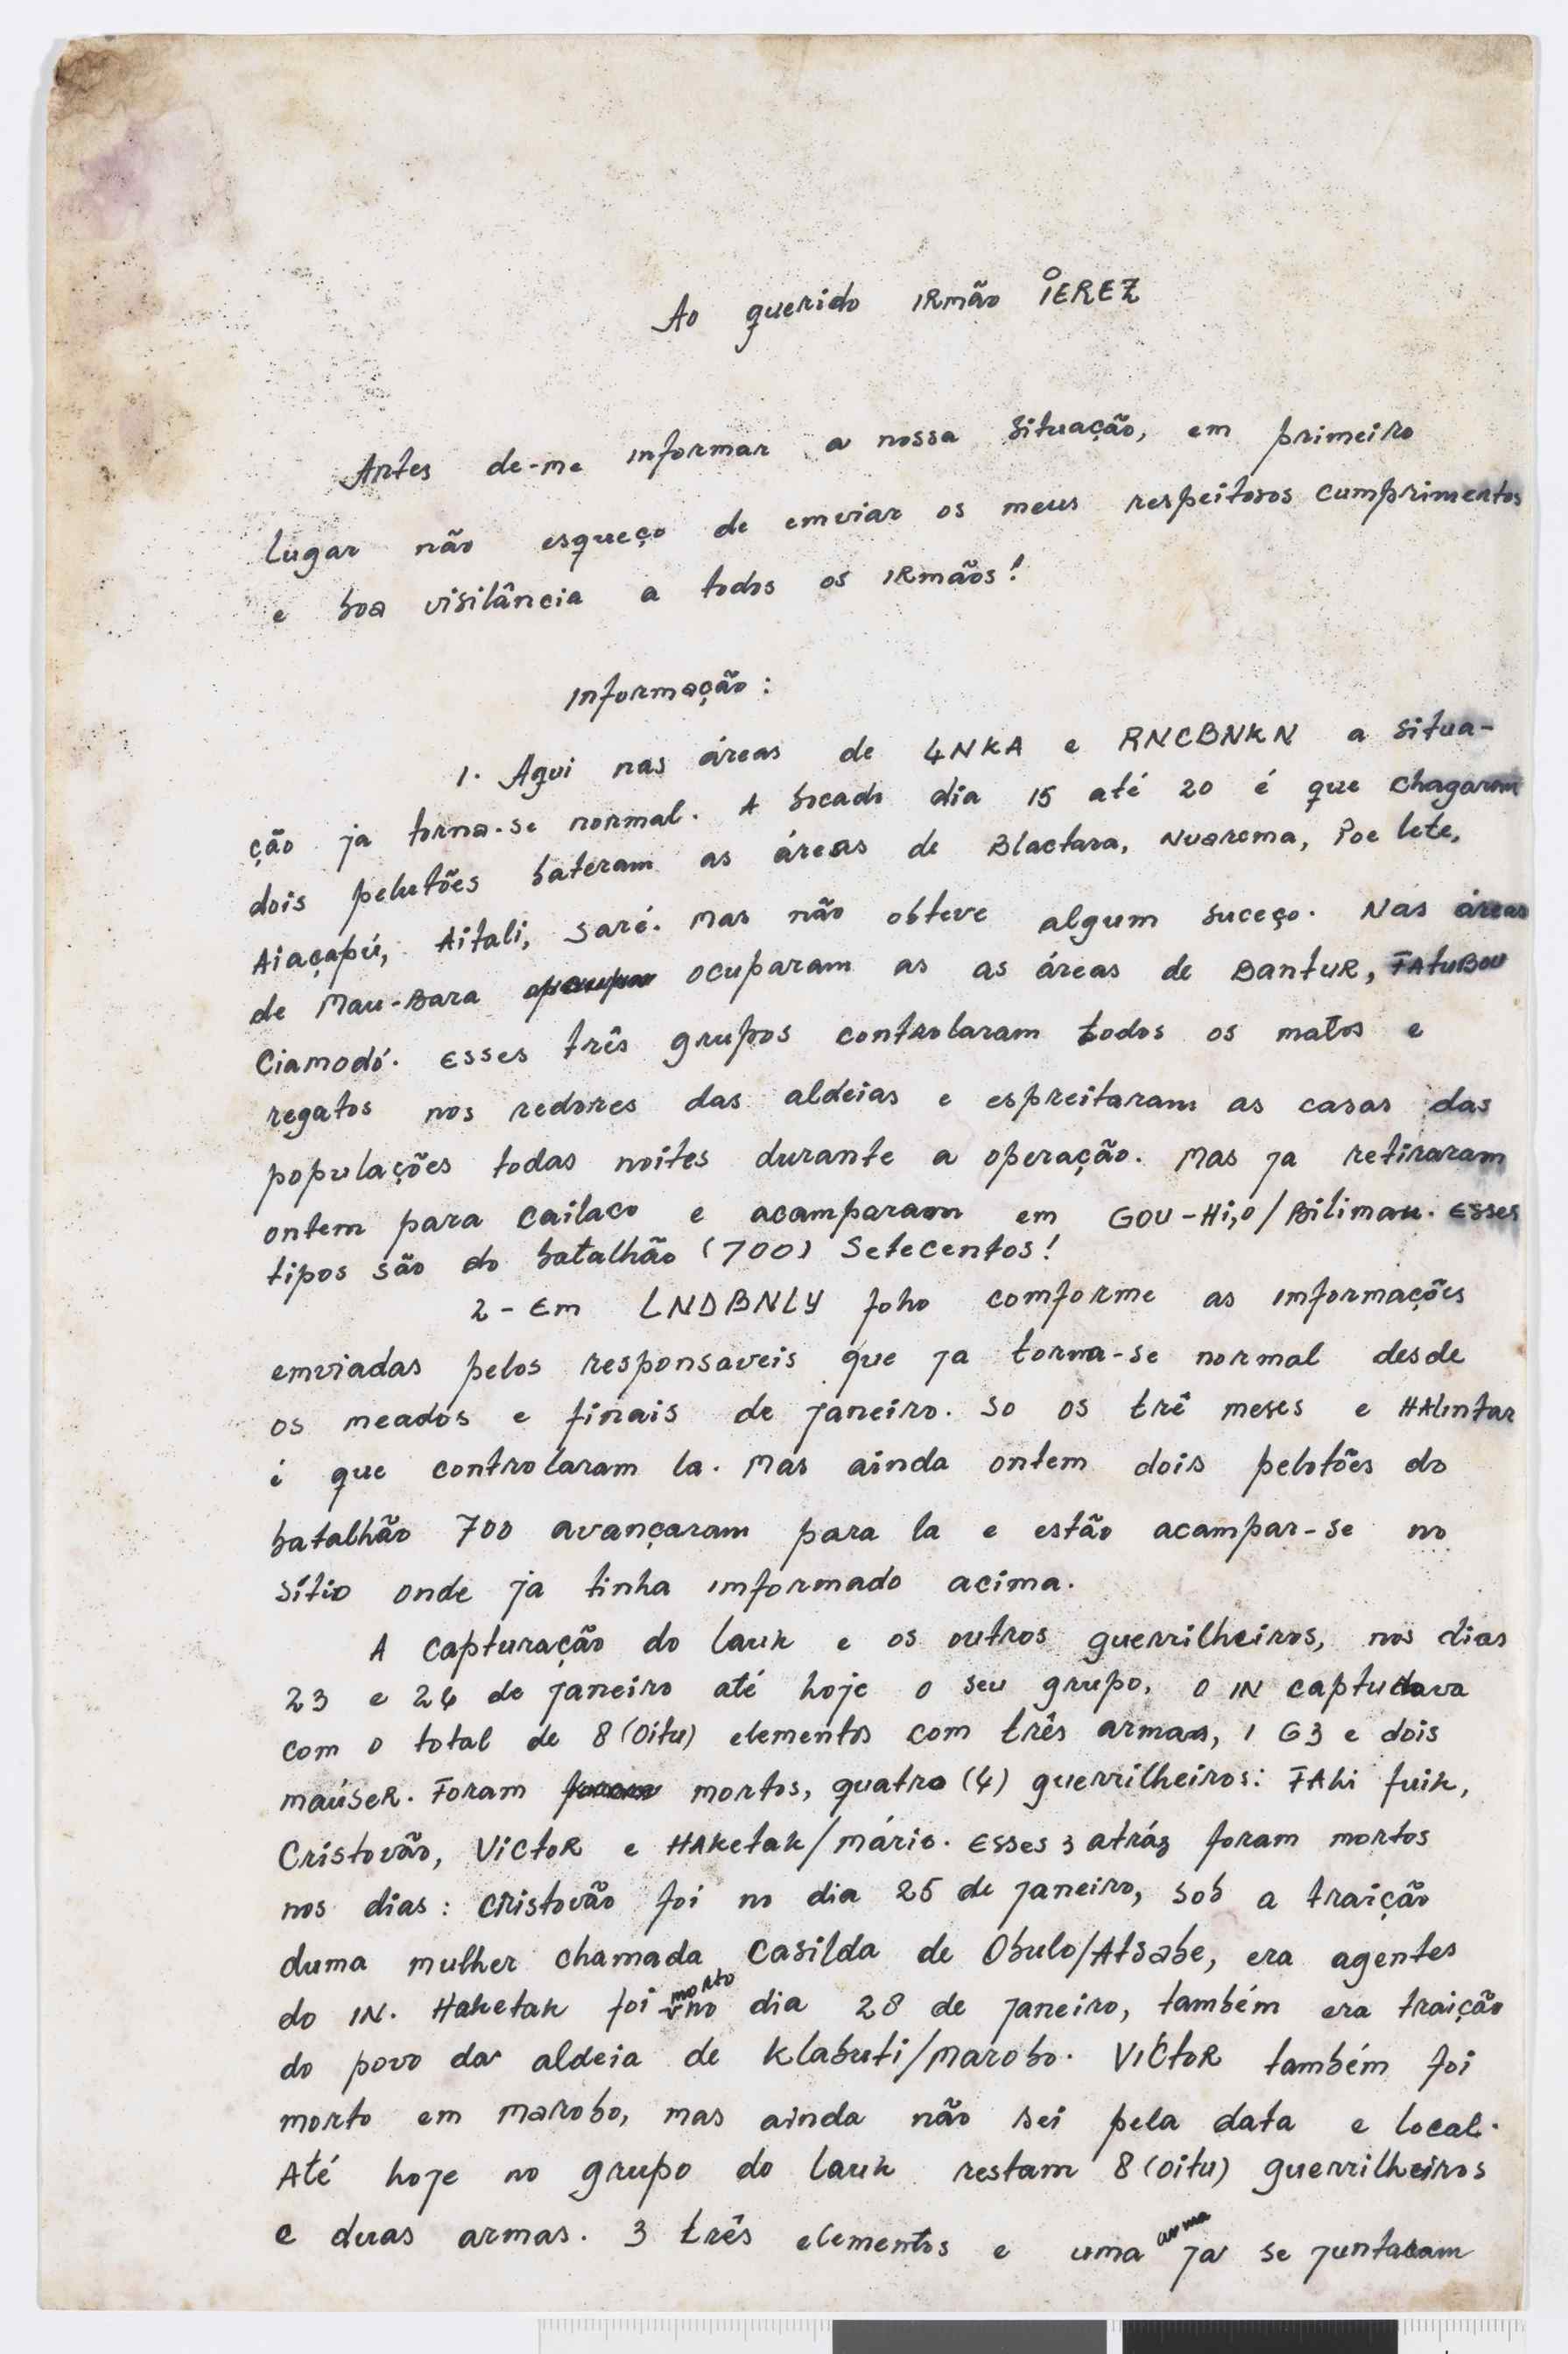 Ao querido IRmão IEREZ
Antes de-me informar a nossa situação, em primeiro
lugar não esqueço de emviar os meus respeitosos cumprimentos
e boa visilância a todos os IRmãos!
Informação:
1. Aqui nas áreas de 4NKA e RNCBNKN a situa-
ção ja torna-se normal. A bocado dia 15 até 20 é que chagaram
dois pelutões bateram as áreas de Blactara, Nuarema, Poe lete,
Aiaçapú, Aitali, Saré. Mas não obteve algum suceço. Nas áreas
de Mau-Bara ocuparam as as áreas de BantuR, FAtuBou
Ciamodó. Esses três grupos controlaram todos os matos e
regatos nos redores das aldeias e espreitaram as casas das
populações todas noites durante a operação. Mas ja retiraram
ontem para Cailaco e acamparam em GOU-Hi,o/Bilimau. Esses
tipos são do batalhão (700) Setecentos!
2-Em LNDBNLY foho comforme as imformações
emviadas pelos responsaveis que ja torna-se normal desde
os meados e finais de janeiro. So os trê meses e HAlintar
é que controlaram la. Mas ainda ontem dois pelotões do
batalhão 700 avançaram para la e estão acampar-se no
sítio onde ja tinha imformado acima.
A capturação do lauk e os outros guerrilheiros, nos dias
23 e 24 de janeiro até hoje o seu grupo, o IN capturava
com o total de 8 (oitu) elementos com três armas, 1 G3 e dois
maúseR. Foram mortos, quatro (4) guerrilheiros: FAhi fuik,
Cristovão, VictoR e HAketak/mário. Esses 3 atráz foram mortos
nos dias: Cristovão foi no dia 25 de janeiro, sob a traição
duma mulher chamada Casilda de Obulo/Atsabe, era agentes
do IN. Haketak foi morto no dia 28 de janeiro, também era traição
do povo da aldeia de Klabuti/Marobo. VictoR também foi
morto em marobo, mas ainda não sei pela data e local.
Até hoje no grupo do lauk restam 8 (oitu) guerrilheiros
e duas armas. 3 três elementos e uma arma ja se juntaram